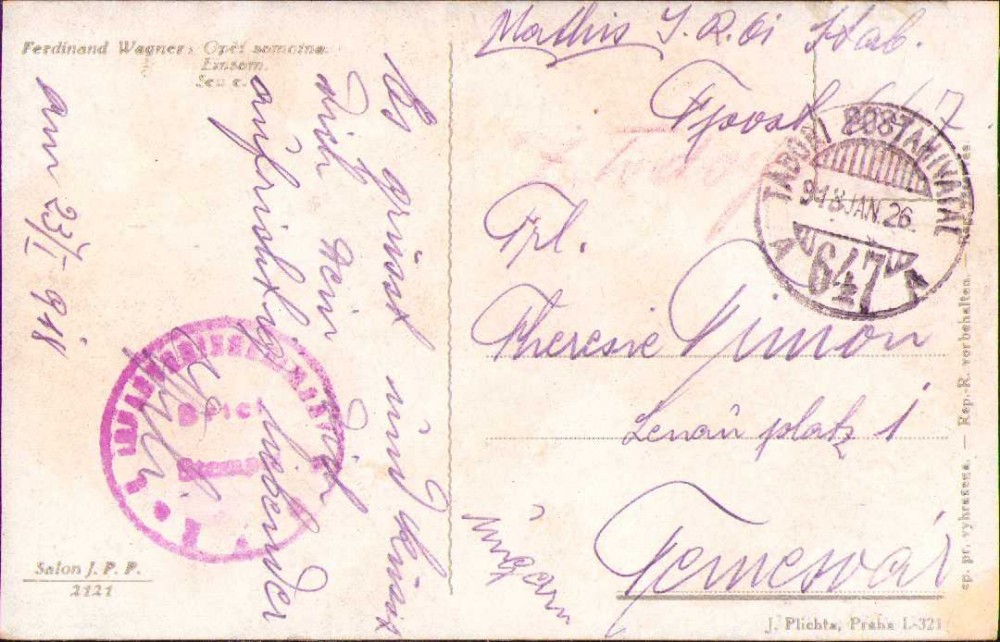 Ferdinand Wagner: Opět samotna.
Einsam.
Seu e.
am 23/I 918
Es grüsst und küsst
dich dein dich
aufrichtig liebender
Salon J. P. P.
2121
Mathis I. R. 61 Stab.
Fpost 647
TÁBORI POSTAHIVATAL
918 JAN. 26.
647
A A
Frl.
Theresie Simon
Lenau platz 1
Temesvár
Ungarn
J. Plichta, Praha I.-321
sp. pr. vyhrazena. — Rep.-R. vorbehalten. —